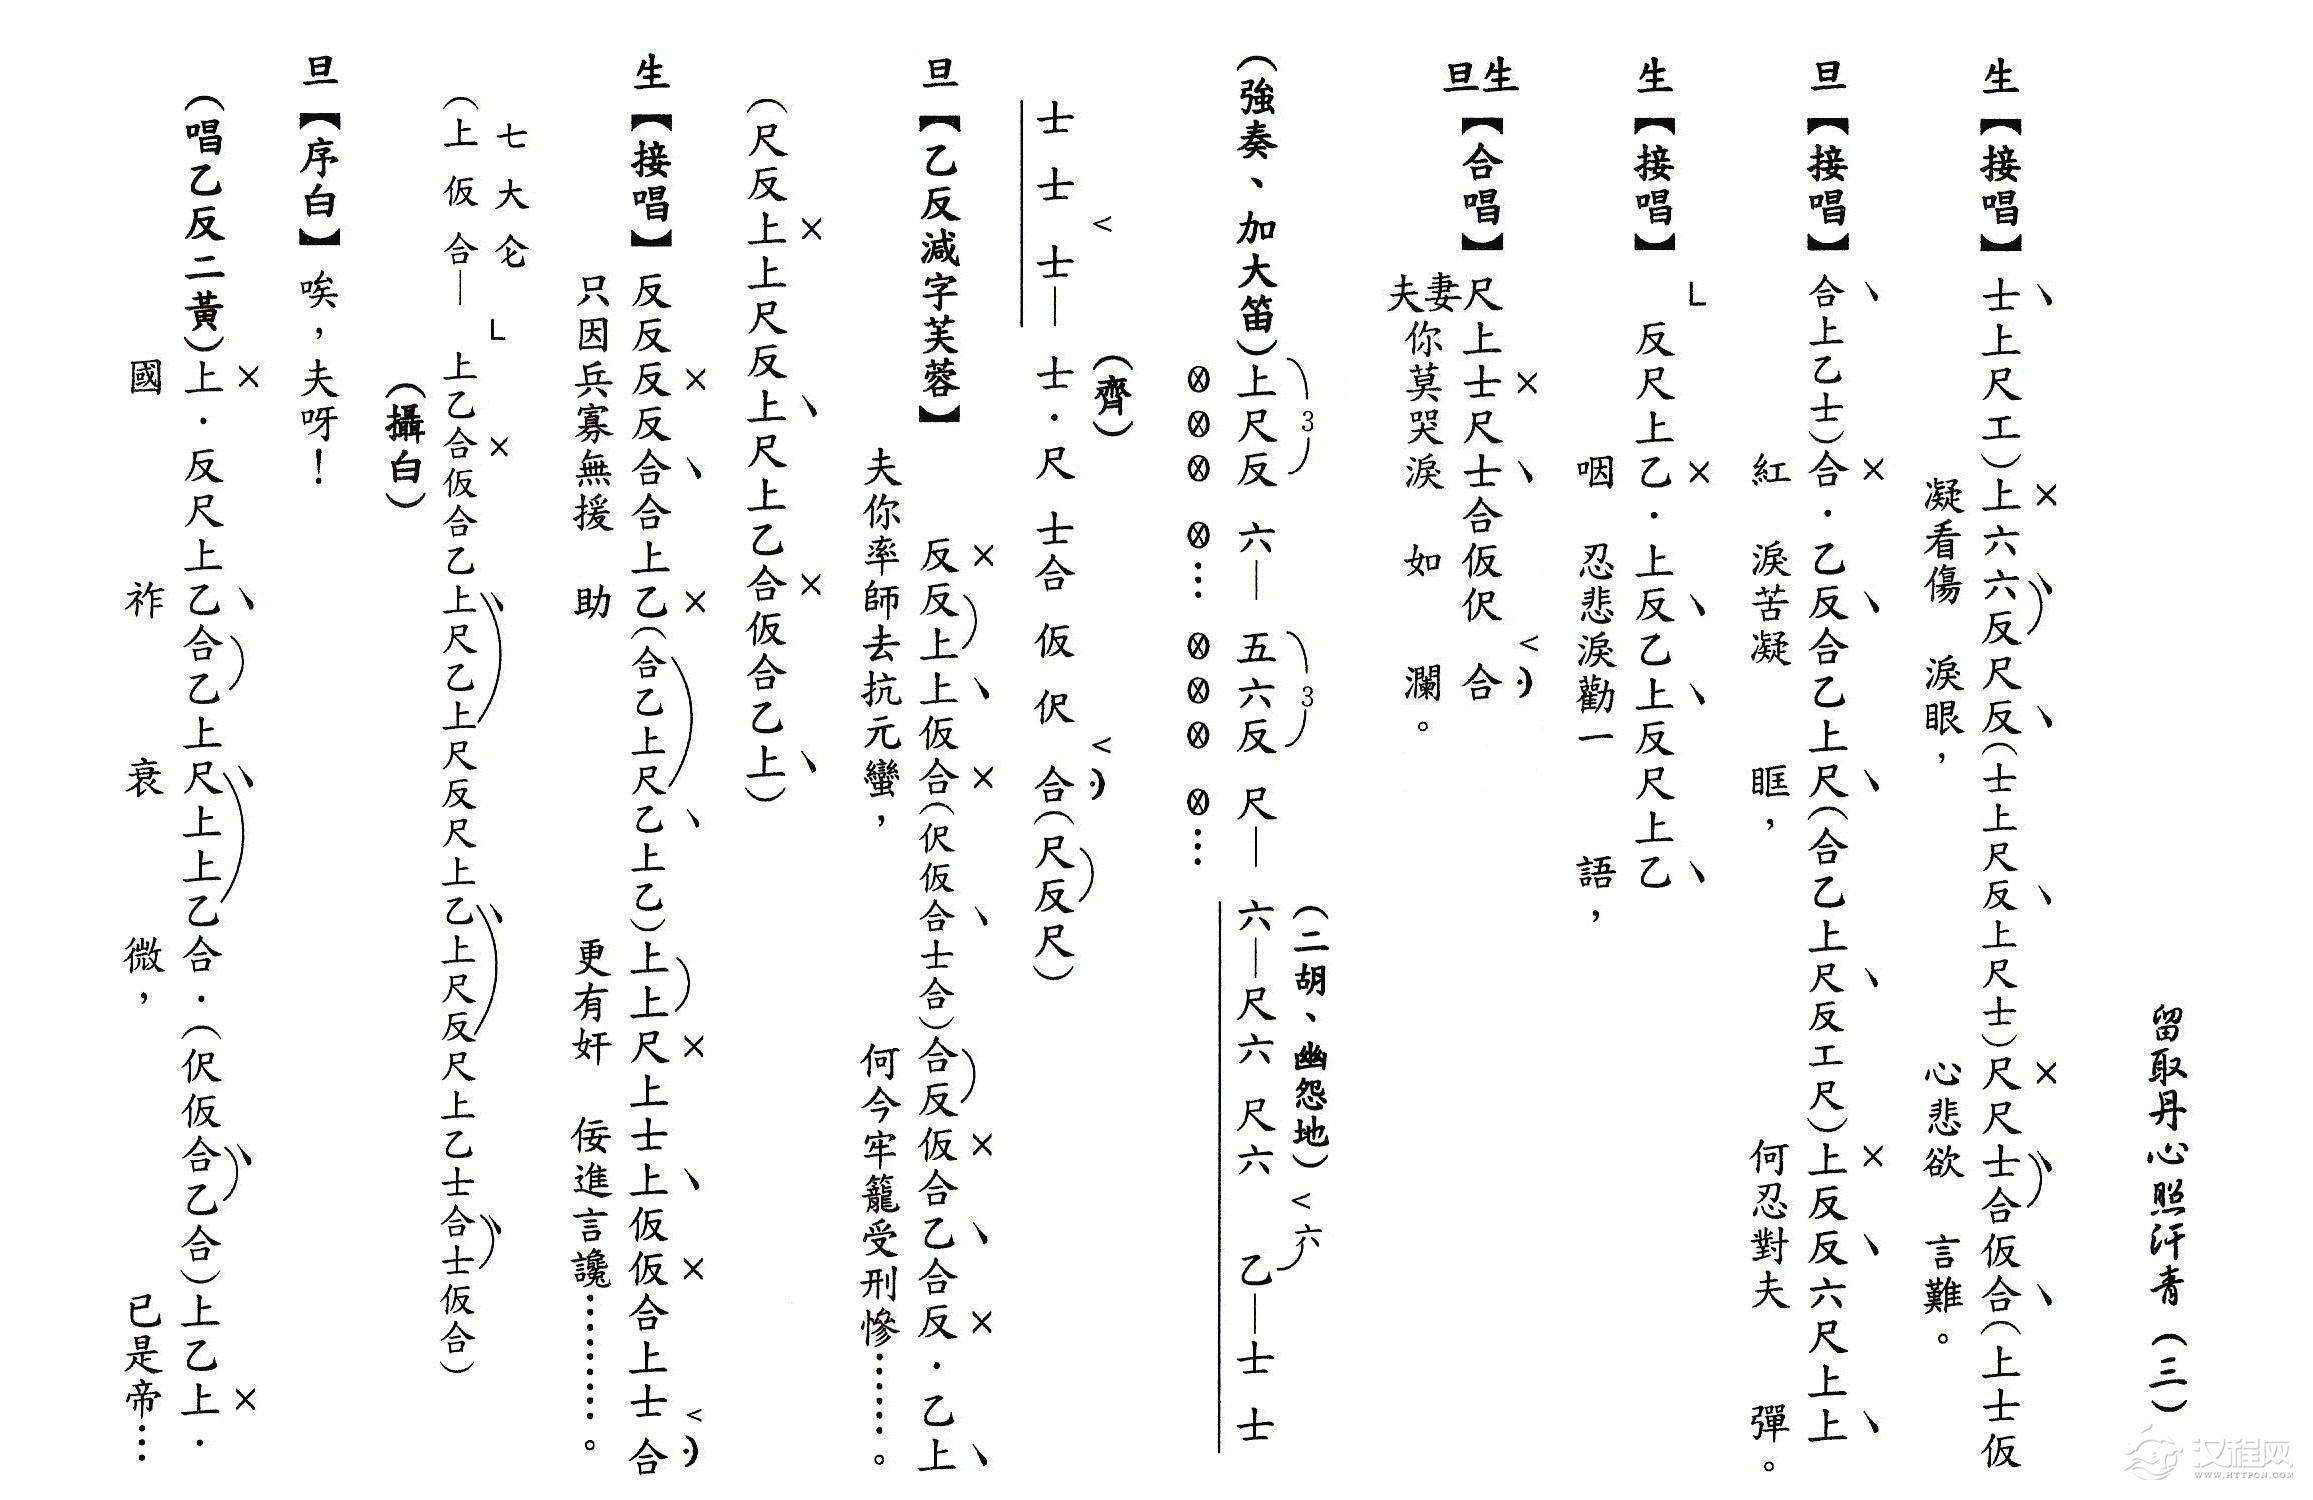 留取丹心照汗青（三）
生【接唱】士上尺工）上六六反尺反（士上尺反上尺士）尺尺士合仮合（上士仮
凝看傷淚眼，心悲欲言難。
旦【接唱】合上乙士）合．乙反合乙上尺（合乙上尺反工尺）上反反六尺上上
紅淚苦凝眶，何忍對夫彈。
生【接唱】反尺上乙．上反乙上反尺上乙
咽忍悲淚勸一語，
生旦【合唱】尺上士尺士合仮伬合
夫妻你莫哭淚如瀾。
（二胡、幽怨地）
（強奏、加大笛）上尺反六—五六反尺—六—尺六尺六六乙—士士
（齊）
士士士—士．尺士合仮伬合（尺反尺）
旦【乙反減字芙蓉】反反上上仮合（伬仮合士合）合反仮合乙合反．乙上
夫你率師去抗元蠻，何今牢籠受刑慘……。
（尺反上上尺反上尺上乙合仮合乙上）
生【接唱】反反反反合合上乙（合乙上尺乙上乙）上上尺上士上仮仮合上士合
只因兵寡無援助更有奸佞進言讒…………。
七大仑
（上仮合—上乙合仮合乙上尺乙上尺反尺上乙上尺反尺上乙士合士仮合）
（攝白）
旦【序白】唉，夫呀！
（唱乙反二黃）上．反尺上乙合乙上尺上上乙合．（伬仮合乙合）上乙上．
國祚衰微，已是帝…
汉程网
WWW.HTTPCN.COM